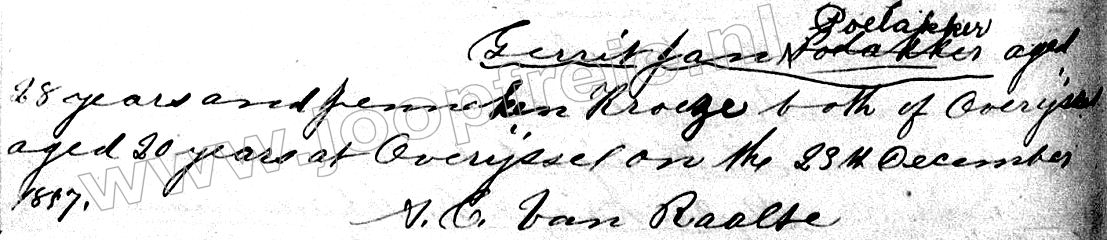 Poelakker
Gerrit Jan Podakker aged
28 years and Jenneken Kroeze both of Overijssel
aged 20 years at Overijssel on the 23th December
1857.
A. C. Van Raalte
www.jooptreis.nl